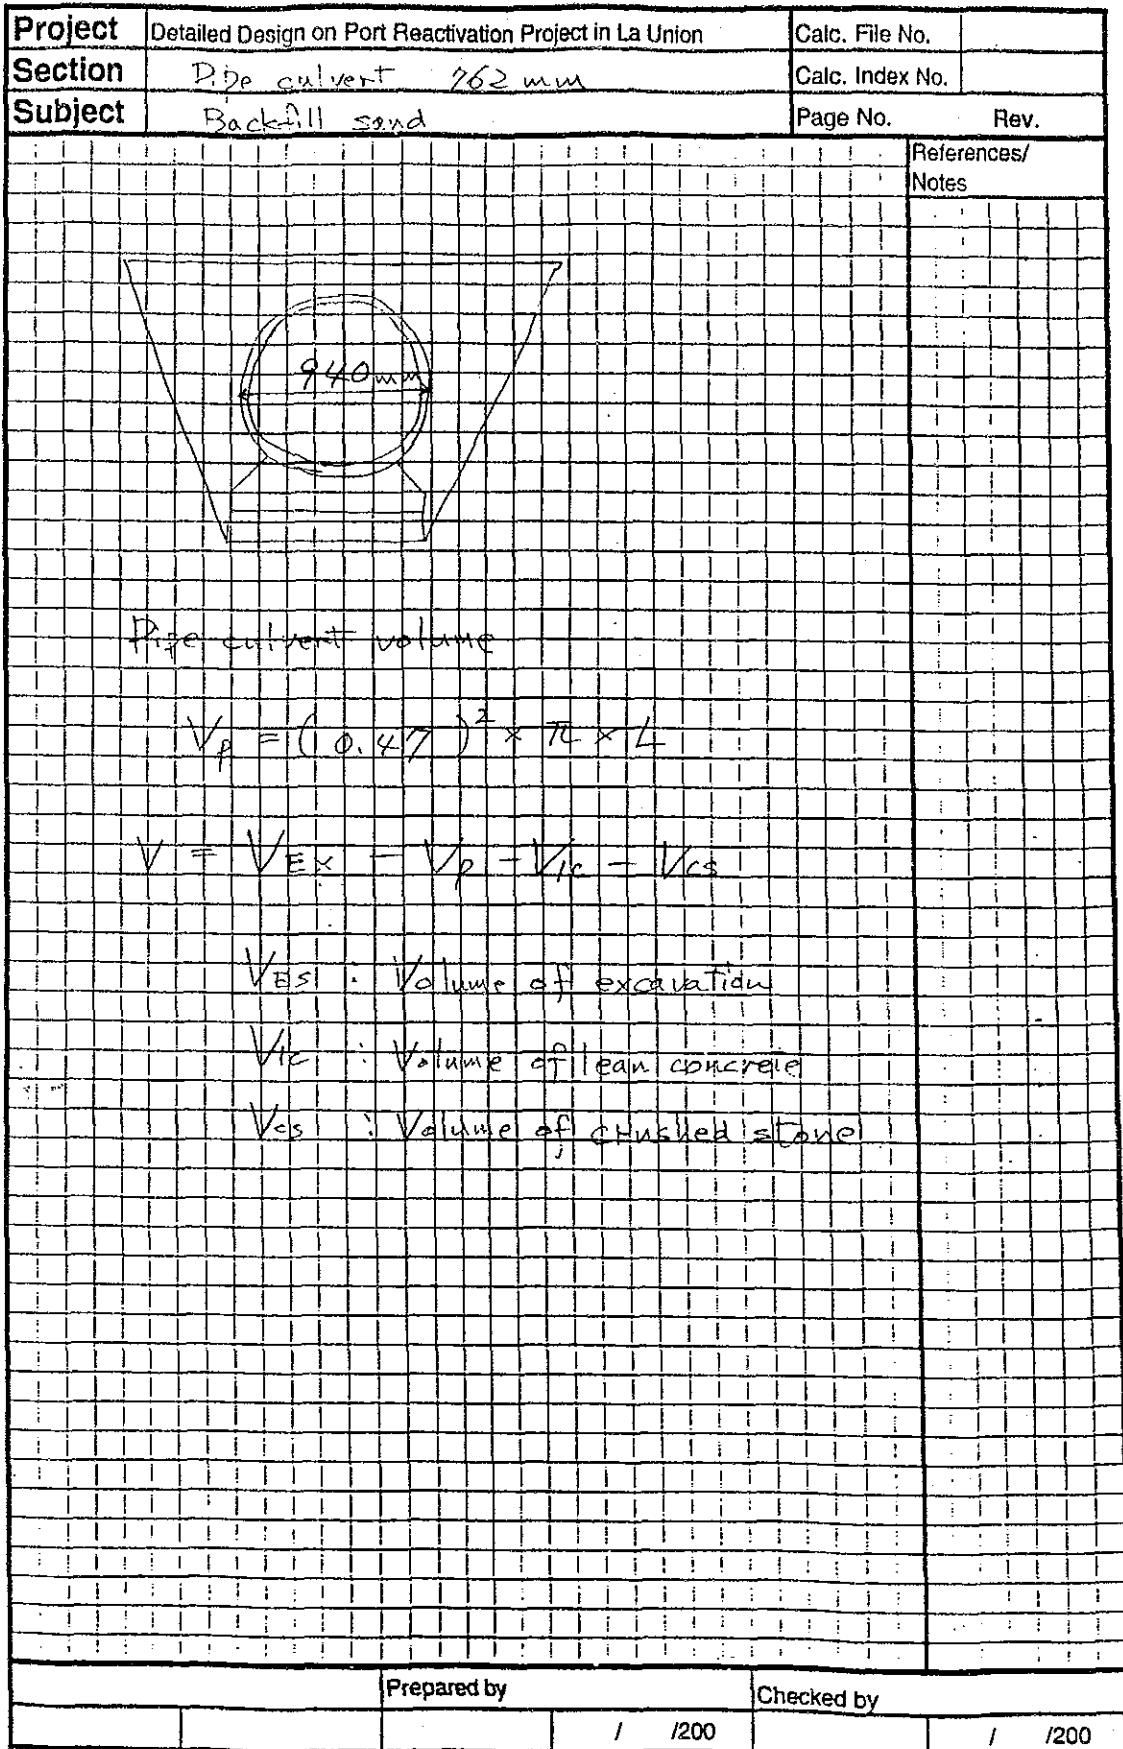 Project Detailed Design on Port Reactivation Project in La Union Calc. File No.
Section Pipe culvert 762 mm Calc. Index No.
Subject Backfill sand Page No. Rev.
References/
Notes
940 mm
Pipe culvert volume
Vp = ( 0.47 )² × π × L
V = VEx - Vp - Vlc - Vcs
VES : Volume of excavation
Vlc : Volume of lean concrete
Vcs : Volume of crushed stone
Prepared by Checked by
/ /200 / /200